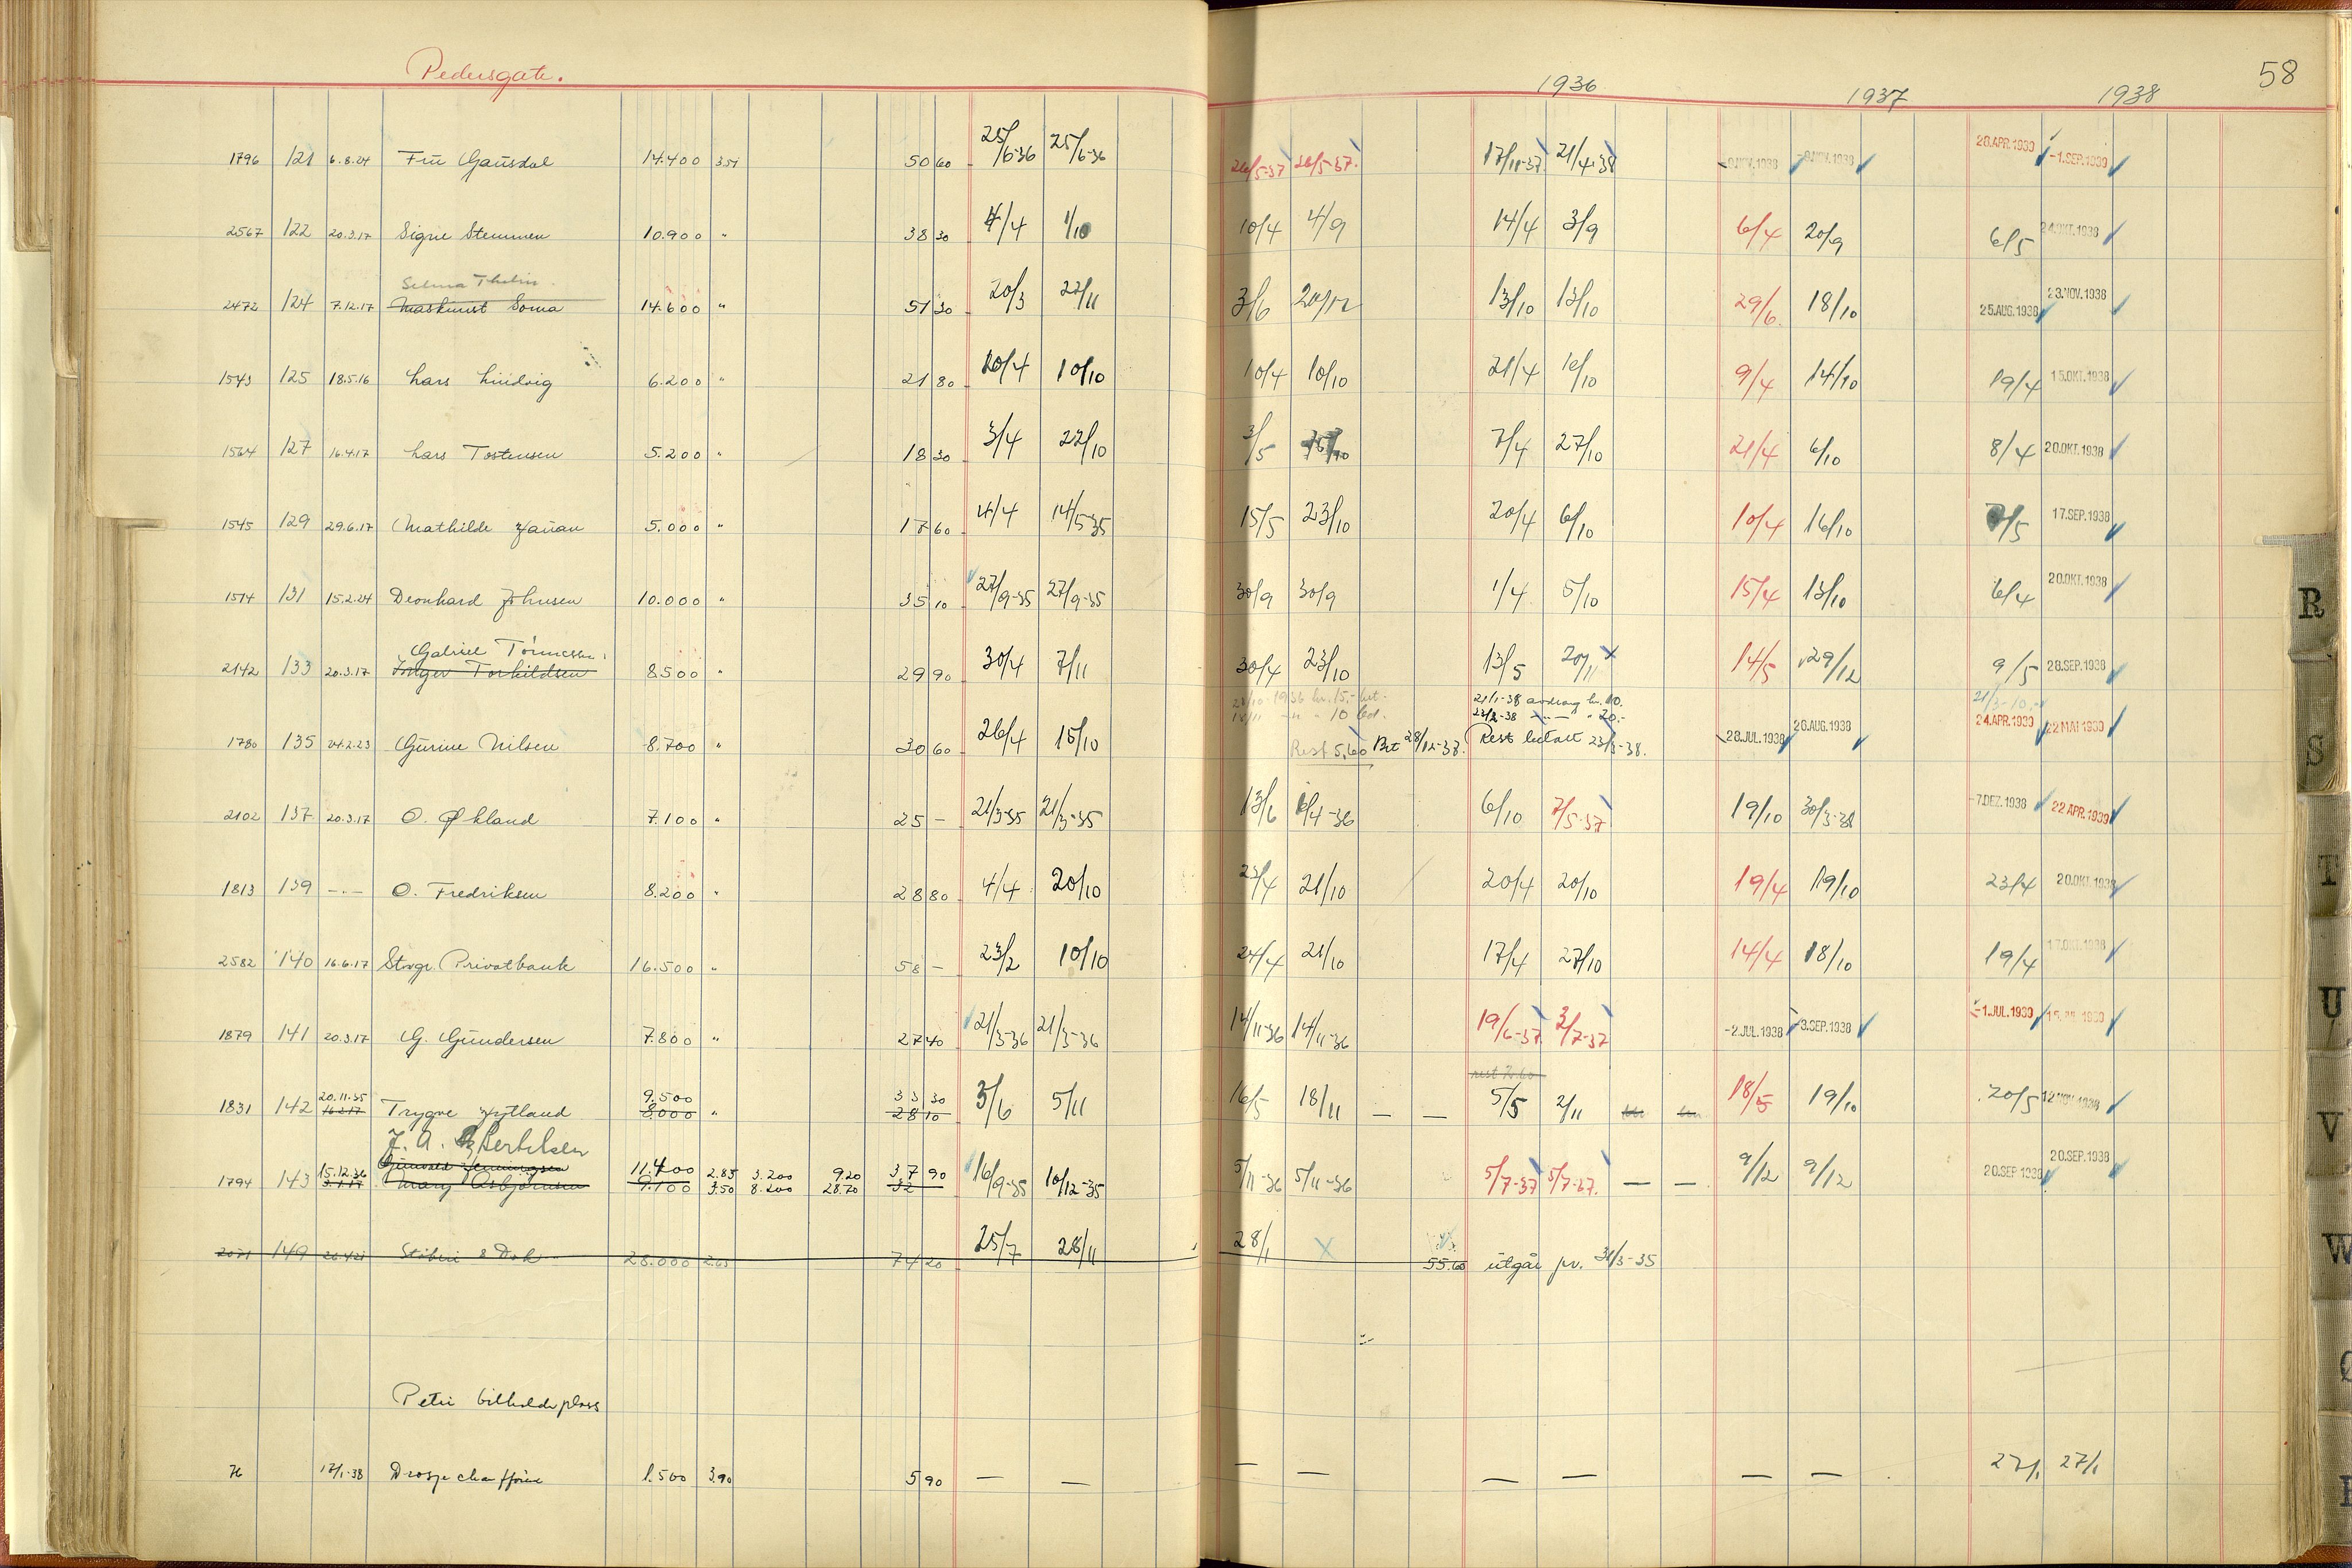 Pedersgate.
1936 1937 1938 58
1796 121 6.8.24 Fru Gausdal 14.400 3.51 50 60 25/6-36 25/6-36 26/5-37 26/5-37 17/11-37 21/4-38 -9.NOV.1938 -9.NOV.1938 28.APR.1939 -1.SEP.1939
2567 122 20.3.17 Signe Stemmen 10.900 " 38 30 4/4 1/10 10/4 4/9 14/4 3/9 6/4 20/9 6/5 24.OKT.1938
Selma Thelin
2472 124 7.12.17 Maskinist Soma 14.600 " 51 30 20/3 22/11 3/6 20/12 13/10 13/10 29/6 18/10 25.AUG.1938 23.NOV.1938
1543 125 18.5.16 Lars Lindvig 6.200 " 21 80 10/4 10/10 10/4 10/10 21/4 10/10 9/4 14/10 19/4 15.OKT.1938
1564 127 16.4.17 Lars Tostensen 5.200 " 18 30 3/4 22/10 3/5 7/4 27/10 21/4 6/10 8/4 20.OKT.1938
1545 129 29.6.17 Mathilde 5.000 " 17 60 4/4 14/5-35 15/5 23/10 20/4 6/10 10/4 16/10 17.SEP.1938
1514 131 15.2.24 Deonhard Johnsen 10.000 " 35 10 27/9-35 27/9-35 30/9 30/9 1/4 5/10 15/4 13/10 6/4 20.OKT.1938
Gabriel Tønnessen
2142 133 20.3.17 Torkildsen 8500 " 29 90 30/4 7/11 30/4 23/10 13/5 20/11 14/5 29/12 9/5 28.SEP.1938
1936 kr. 15,- bet. 21/1-38 avdrag kr. 10. 21/3-10,-
" 10 bet. 23/2-38 " 20.-
1780 135 24.2.23 Gurine Nilsen 8.700 " 30 60 26/4 15/10 Rest 5,60 Bet 28/12-38. Rest betalt 23/3-38. 28.JUL.1938 26.AUG.1938 24.APR.1939 22 MAI 1939
2102 137 20.3.17 O. Økland 7.100 " 25 - 21/3-35 21/3-35 13/6 6/4-36 6/10 7/5-37 19/10 30/3-38 -7.DEZ.1938 22 APR.1939
1813 139 -"- O. Fredriksen 8.200 " 28 80 4/4 20/10 23/4 21/10 20/4 20/10 19/4 19/10 23/4 20.OKT.1938
2582 140 16.6.17 Stvgr. Privatbank 16.500 " 58 - 23/2 10/10 24/4 21/10 17/4 27/10 14/4 18/10 19/4 17.OKT.1938
1879 141 20.3.17 G. Gundersen 7.800 " 27 40 21/3-36 21/3-36 14/11-36 14/11-36 19/6-37 3/7-37 -2.JUL.1938 -3.SEP.1938 -1.JUL.1939 15.JUL.1939
20.11.35 9.500 33 30
1831 142 16.2.17 Trygve Nytland 8.000 " 28 10 3/6 5/11 16/5 18/11 - - 5/5 2/11 18/5 19/10 20/5 12 NOV.1938
J. A. Bertelsen
15.12.36 Gunvald Henningsen 11.400 2.85 3.200 9.20 37 90
1794 143 3.1.17 Mary Asbjørnsen 9.100 3.50 8.200 28.70 32 16/9-35 10/12-35 5/11-36 5/11-36 5/7-37 5/7-37. - - 9/12 9/12 20.SEP.1938 20.SEP.1938
2071 149 26.4.21 Støberi & Dok 28.000 2.65 74 20 25/7 28/11 28/1 X 55.60 utgår pr. 31/3-35
Petri bilholdeplass
76 17/1-38 Drosjechauffører 1.500 3.90 5 90 - - - - - - - - 27/1 27/1
R
S
T
U
V
W